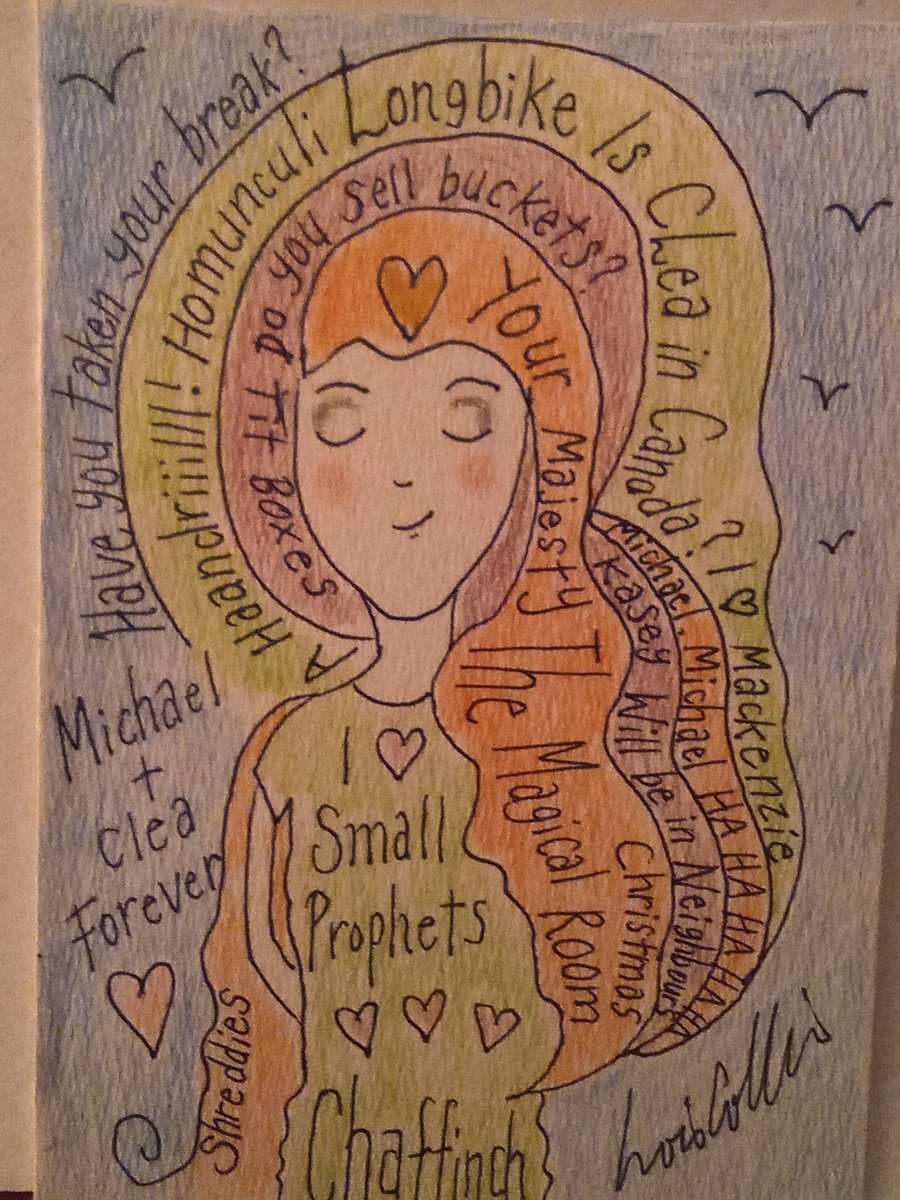 Have you taken your break?
Haandriiilll! Homunculi Longbike Is Clea in Canada? I ♡ Mackenzie
Tit Boxes Do you sell buckets?
Your Majesty The Magical Room
Christmas
Kasey Will be in Neighbours
Michael. Michael HA HA HA HA HA HA
Michael
+
Clea
Forever
I ♡
Small
Prophets
Shreddies
Chaffinch
Lois Collis